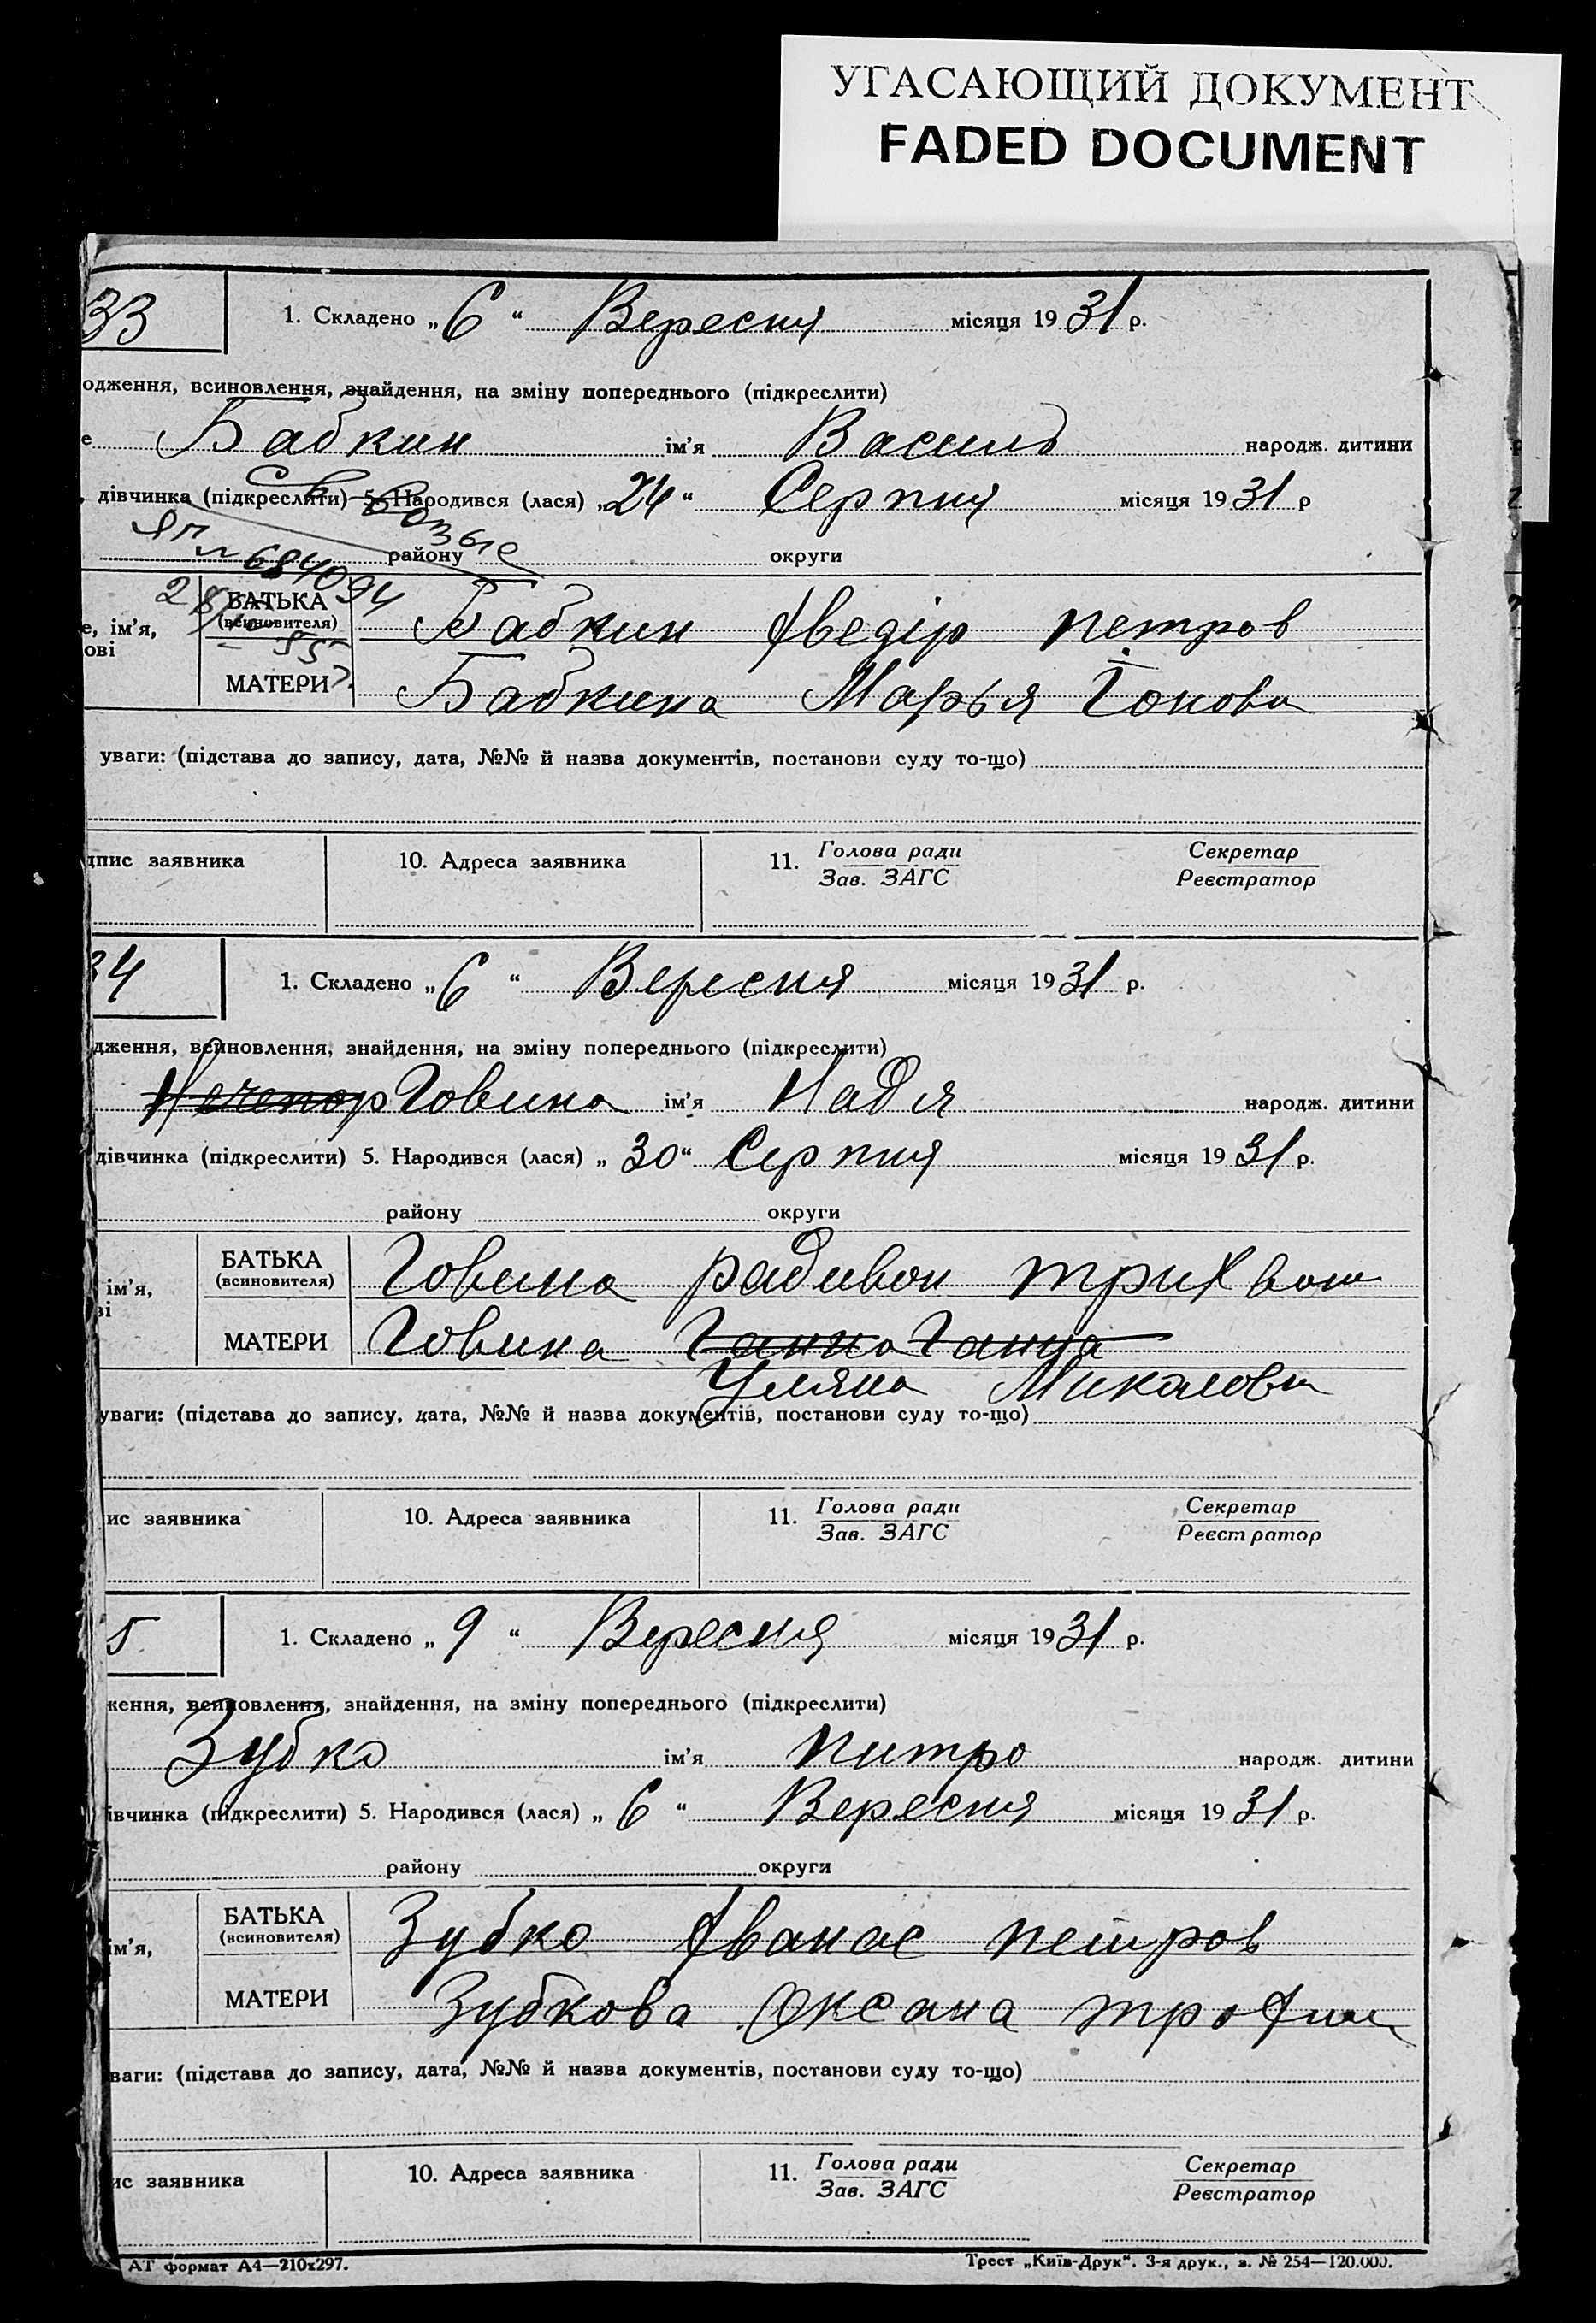 УГАСАЮЩИЙ ДОКУМЕНТ
FADED DOCUMENT
33
1. Складено „ 6 “ Вересня місяця 1931 р.
одження, всиновлення, знайдення, на зміну попереднього (підкреслити)
е Бабкин ім'я Василь народж. дитини
дівчинка (підкреслити) 5. Народився (лася) „24“ Серпня місяця 1931 р
района округи
684094
е, ім'я,
ові
БАТЬКА
(всиновителя)
Бабкин Фведір петров
МАТЕРИ Бабкина Марья Іонова
уваги: (підстава до запису, дата, №№ й назва документів, постанови суду то-що)
дпис заявника 10. Адреса заявника 11. Голова ради Секретар
Зав. ЗАГС Реєстратор
34
1. Складено „ 6 “ Вересня місяця 1931 р.
дження, всиновлення, знайдення, на зміну попереднього (підкреслити)
Нечепор Говина ім'я Надя народж. дитини
дівчинка (підкреслити) 5. Народився (лася) „ 30“ Серпня місяця 1931 р.
району округи
ім'я,
ві
БАТЬКА
(всиновителя)
Говина радивон трихвон
МАТЕРИ Говина Ганна Ганна
Уляна Миколови
уваги: (підстава до запису, дата, №№ й назва документів, постанови суду то-що)
ис заявника 10. Адреса заявника 11. Голова ради Секретар
Зав. ЗАГС Реєстратор
5
1. Складено „ 9 “ Вересня місяця 1931 р.
ження, всиновлення, знайдення, на зміну попереднього (підкреслити)
Зубко ім'я питро народж. дитини
івчинка (підкреслити) 5. Народився (лася) „ 6 “ Вересня місяця 1931 р.
району округи
ім'я,
БАТЬКА
(всиновителя)
Зубко Фванас петров
МАТЕРИ Зубкова Оксана трофим
ваги: (підстава до запису, дата, №№ й назва документів, постанови суду то-що)
ис заявника 10. Адреса заявника 11. Голова ради Секретар
Зав. ЗАГС Реєстратор
АТ формат А4—210х297. Трест „Київ-Друк“. 3-я друк., з. № 254—120.000.